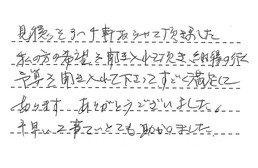 見積もそうへ軒取らせて頂きました
私の方の希望を聞き入れて頂き、納得の行く
予算を聞き入れて下さってすごく満足して
おります ありがとうございました。
手早い工事でとても助かりました。